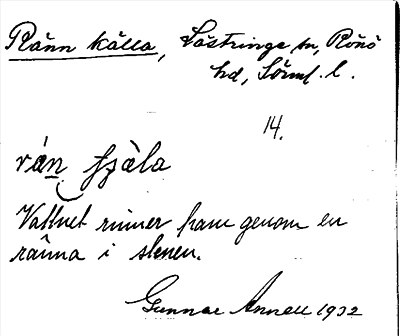 Ränn källa, Lästringe sn, Rönö
hd, Sörml. l.
14.
rán fjàla
Vattnet rinner fram genom en
ränna i stenen.
Gunnar Annell 1932